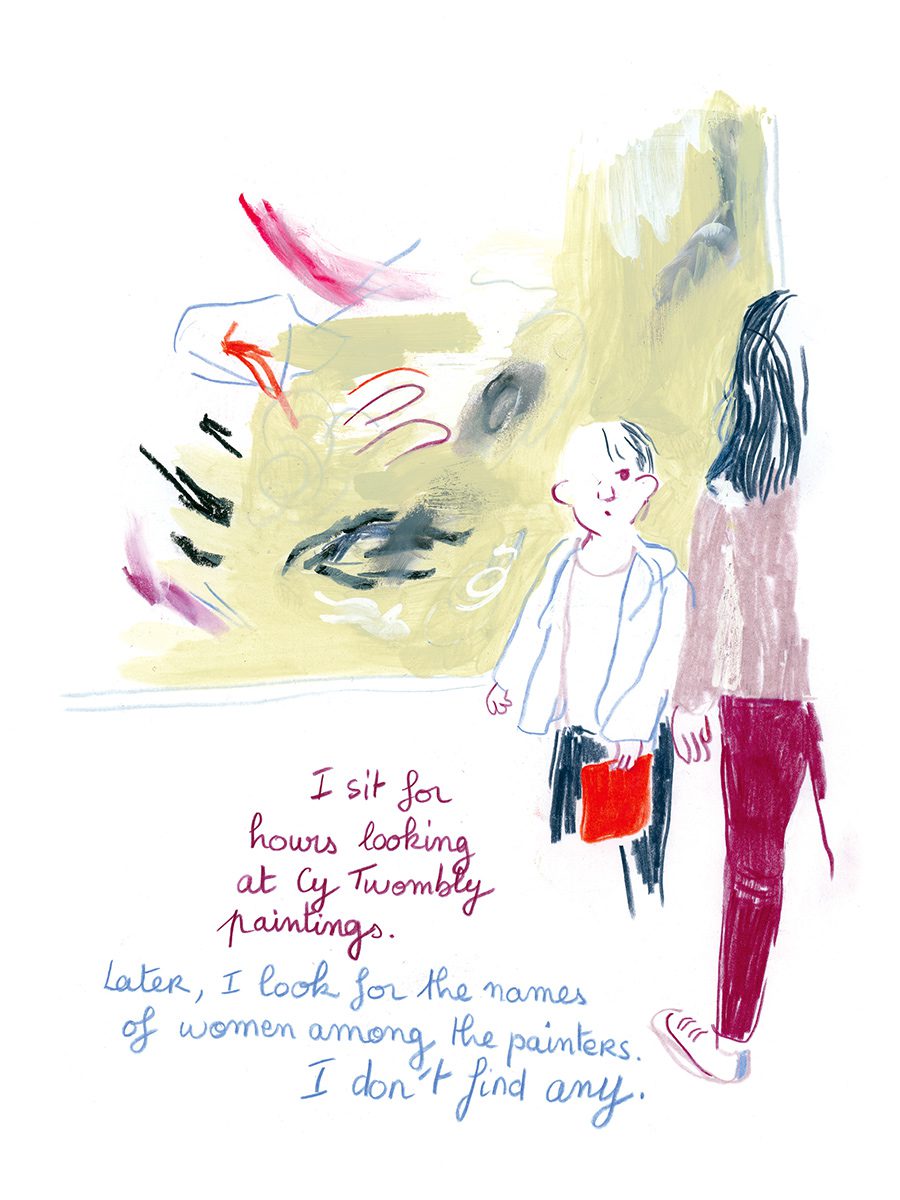 I sit for
hours looking
at Cy Twombly
paintings.
Later, I look for the names
of women among the painters.
I don't find any.